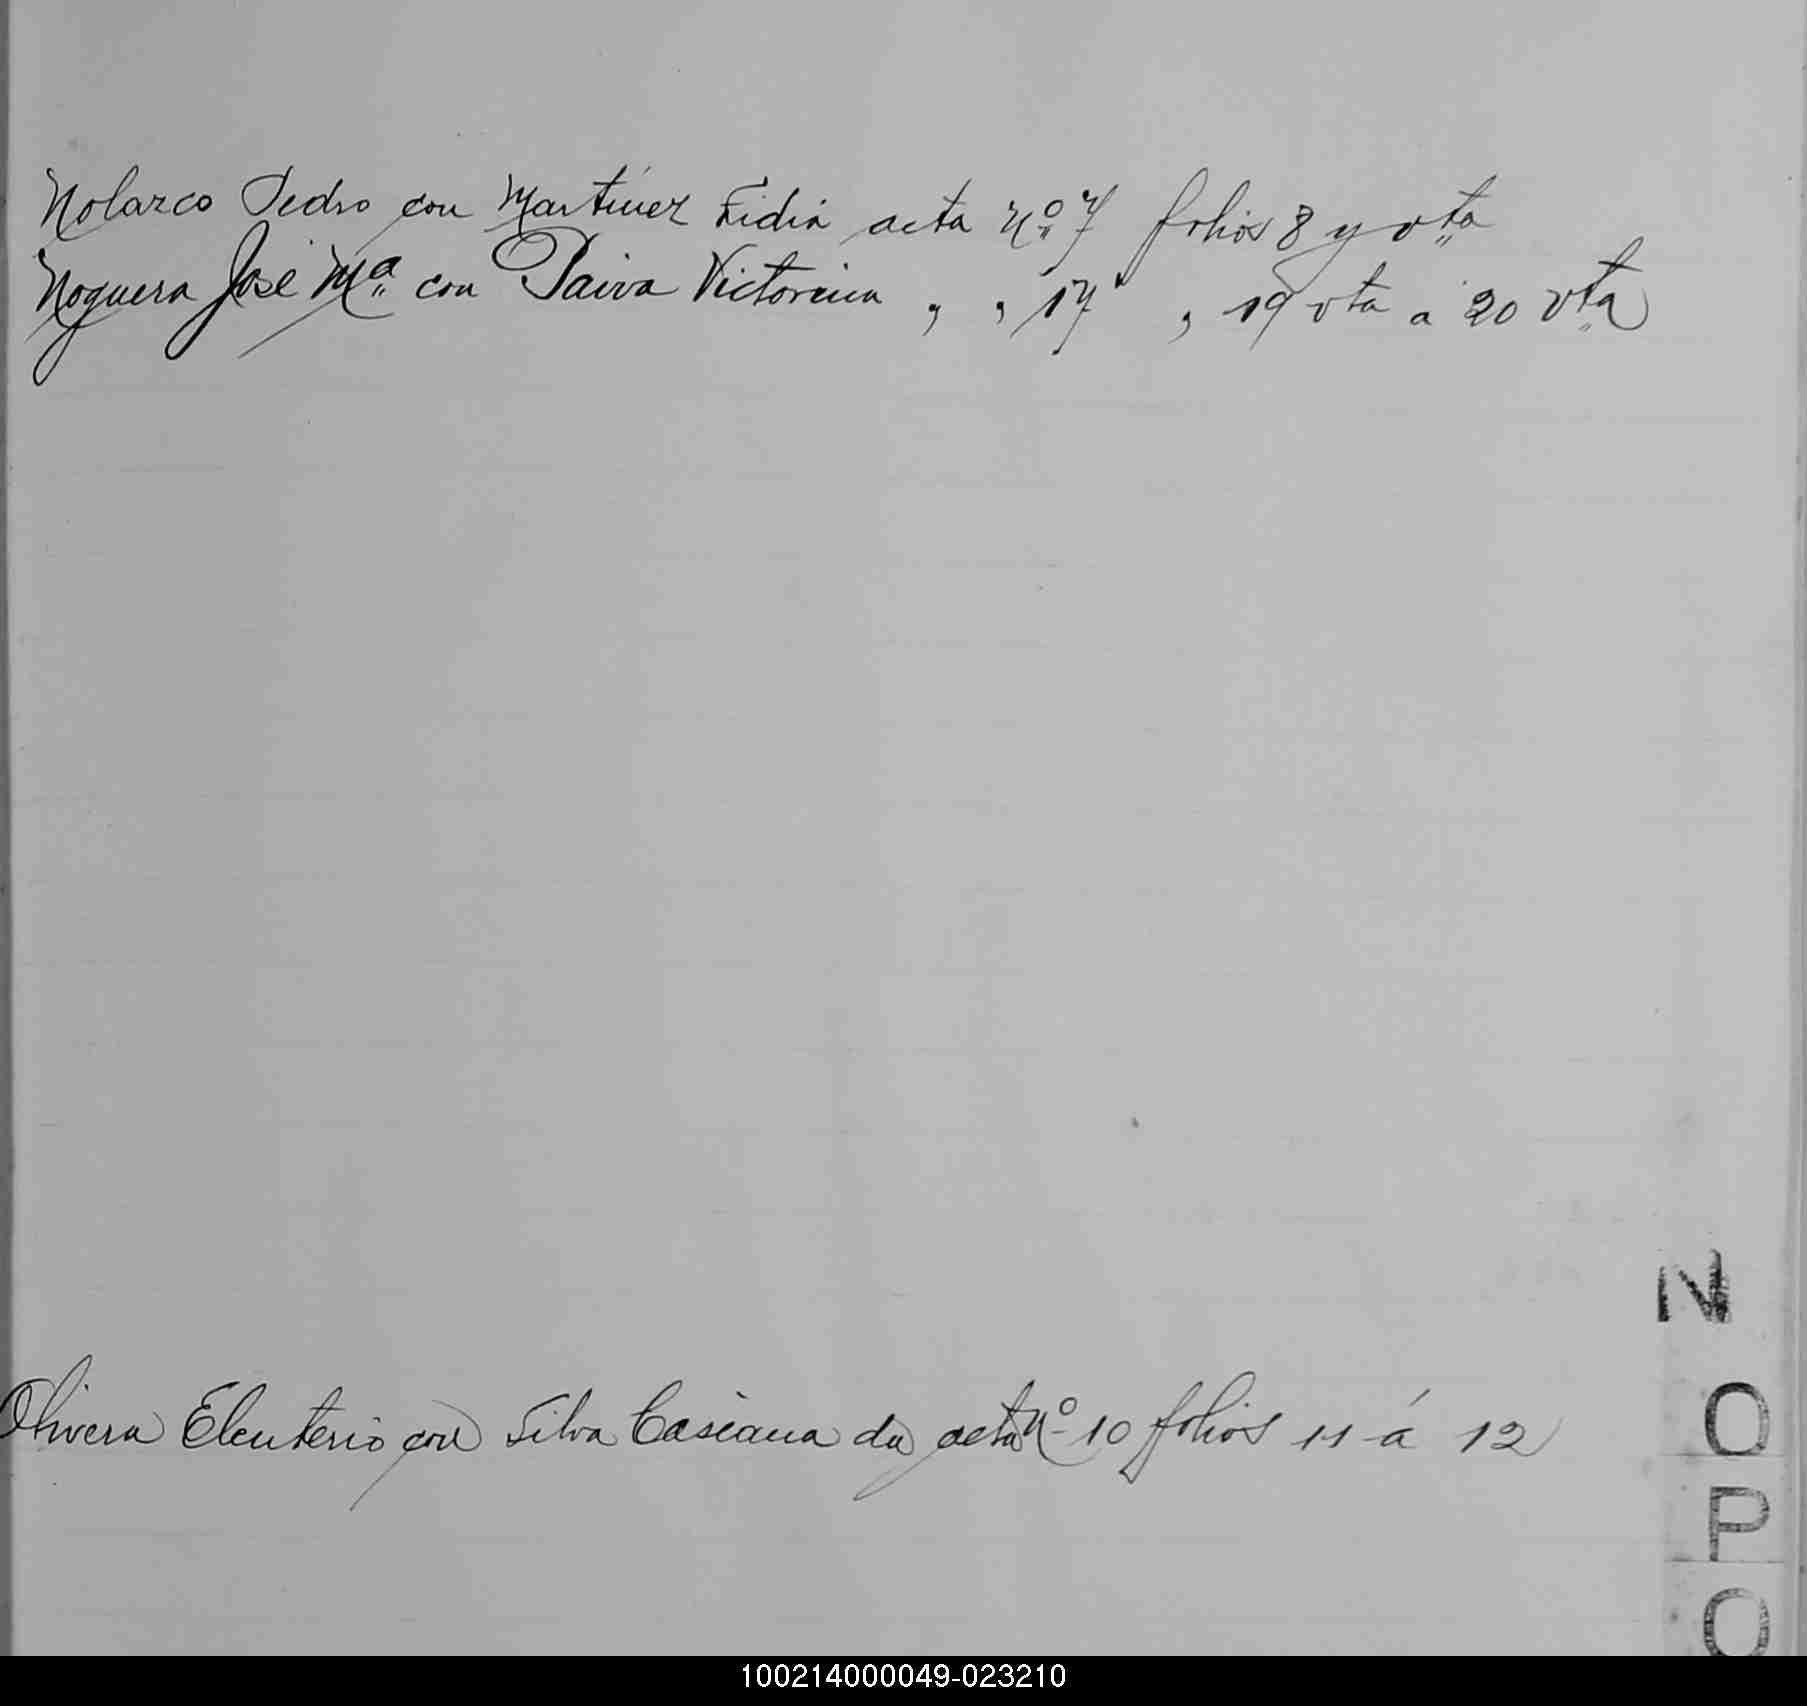 Nolazco Pedro con Martínez Lidia acta Nº 7 folios 8 y vta
Noguera José Mª con Paiva Victoreina , , 17 , 19 vta a 20 vta
N
Olivera Eleuterio con Silva Casiana da acta Nº 10 folios 11 á 12
O
P
Q
100214000049-023210